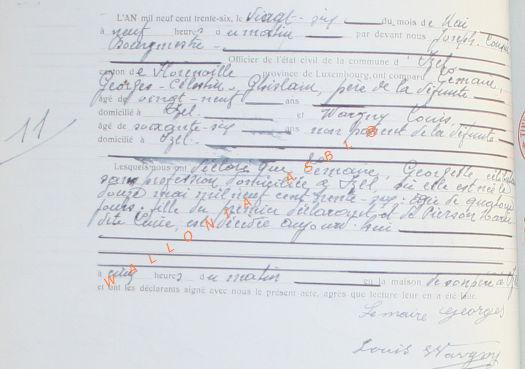 L'AN mil neuf cent trente-six, le vingt-six du mois de Mai
à neuf heures du matin par devant nous Joseph
Bourgmestre
Officier de l'état civil de la commune d'Izel
canton de Florenville province de Luxembourg, ont comparu Lemaire,
Georges-Célestin-Ghislain, père de la défunte
âgé de vingt-neuf ans
domicilié à Izel et Wavgny Louis,
âgé de soixante-six ans non parent de la défunte
domicilié à Izel.
11
Lesquels nous ont déclaré que Lemaire, Georgette, célibataire
sans profession domiciliée à Izel, où elle est née le
douze mai mil neuf cent trente-six, âgée de quatorze
jours, fille du premier déclarant et de Pierson
dite est décédée aujourd'hui
à cinq heures du matin en la maison de son père à
et ont les déclarants signé avec nous le présent acte, après que lecture leur en a été faite.
Lemaire Georges
Louis Wavgny
WALLONIA ASBL